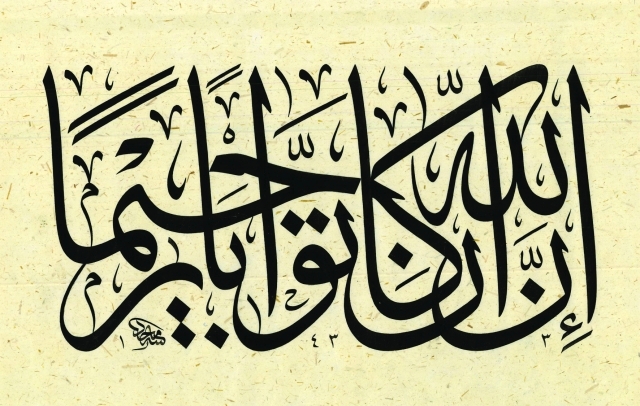 إِنَّ اللّٰهَ كَانَ تَوَّابًا رَحِيمًا
١٤٣٣